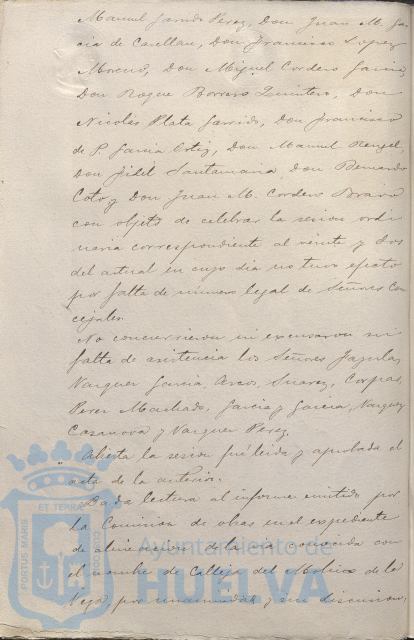 Manuel Garrido Perez, Don Juan M. Gar
cia de Casellan, Don Francisco Lopez
Moreno, Don Miguel Cordero Garcia,
Don Roque Borrero Quintero, Don
Nicolás Plata Garrido, Don Francisco
de P. Garcia Ortiz, Don Manuel Rengel,
Don Fidel Santamaria, Don Bernardo
Coto y Don Juan M. Cordero Bravo
con objeto de celebrar la sesion ordi
naria correspondiente al veinte y dos
del actual en cuyo dia no tuvo efecto
por falta de número legal de Señores Con
cejales.
No concurrieron ni excusaron su
falta de asistencia los Señores
Vazquez Garcia, Arcos, Suarez,
Perez Machado, Garcia y Garcia, Vazquez
Casanova y Vazquez Perez.
Abierta la sesion fué leida y aprobada el
acta de la anterior.
Dada lectura al informe emitido por
la Comision de obras en el expediente
de alineacion de la conocida con
el nombre de Calleja del Molino de la
Vega, por unanimidad y sin discusion,
ET TERRÆ
PORTUS MARIS
CUSTODIA
Ayuntamiento de
HUELVA